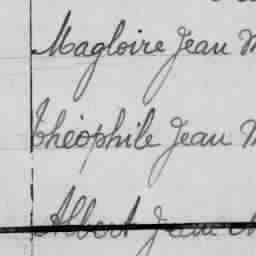 Magloire Jean M
Théophile Jean M
Albert Jean M